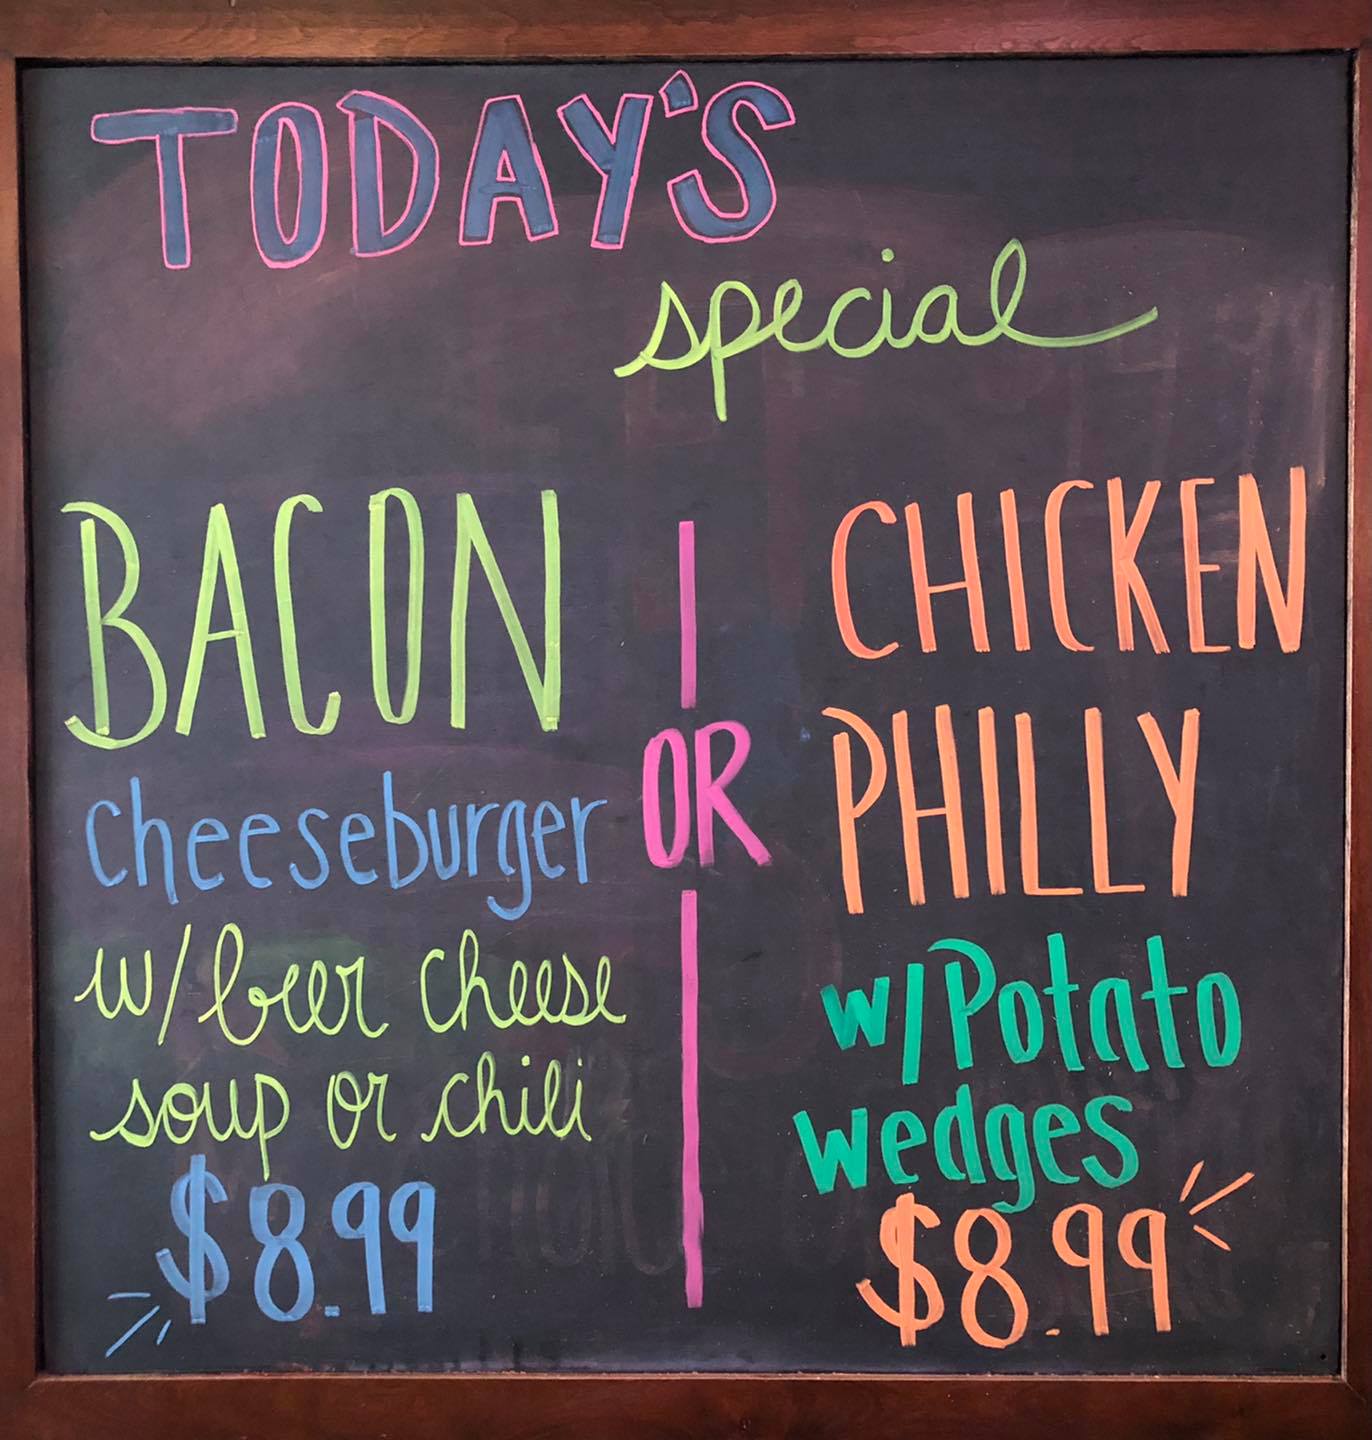 TODAY'S
special
BACON
cheeseburger
w/beer cheese
soup or chili
$8.99
OR
CHICKEN
PHILLY
w/Potato
wedges
$8.99